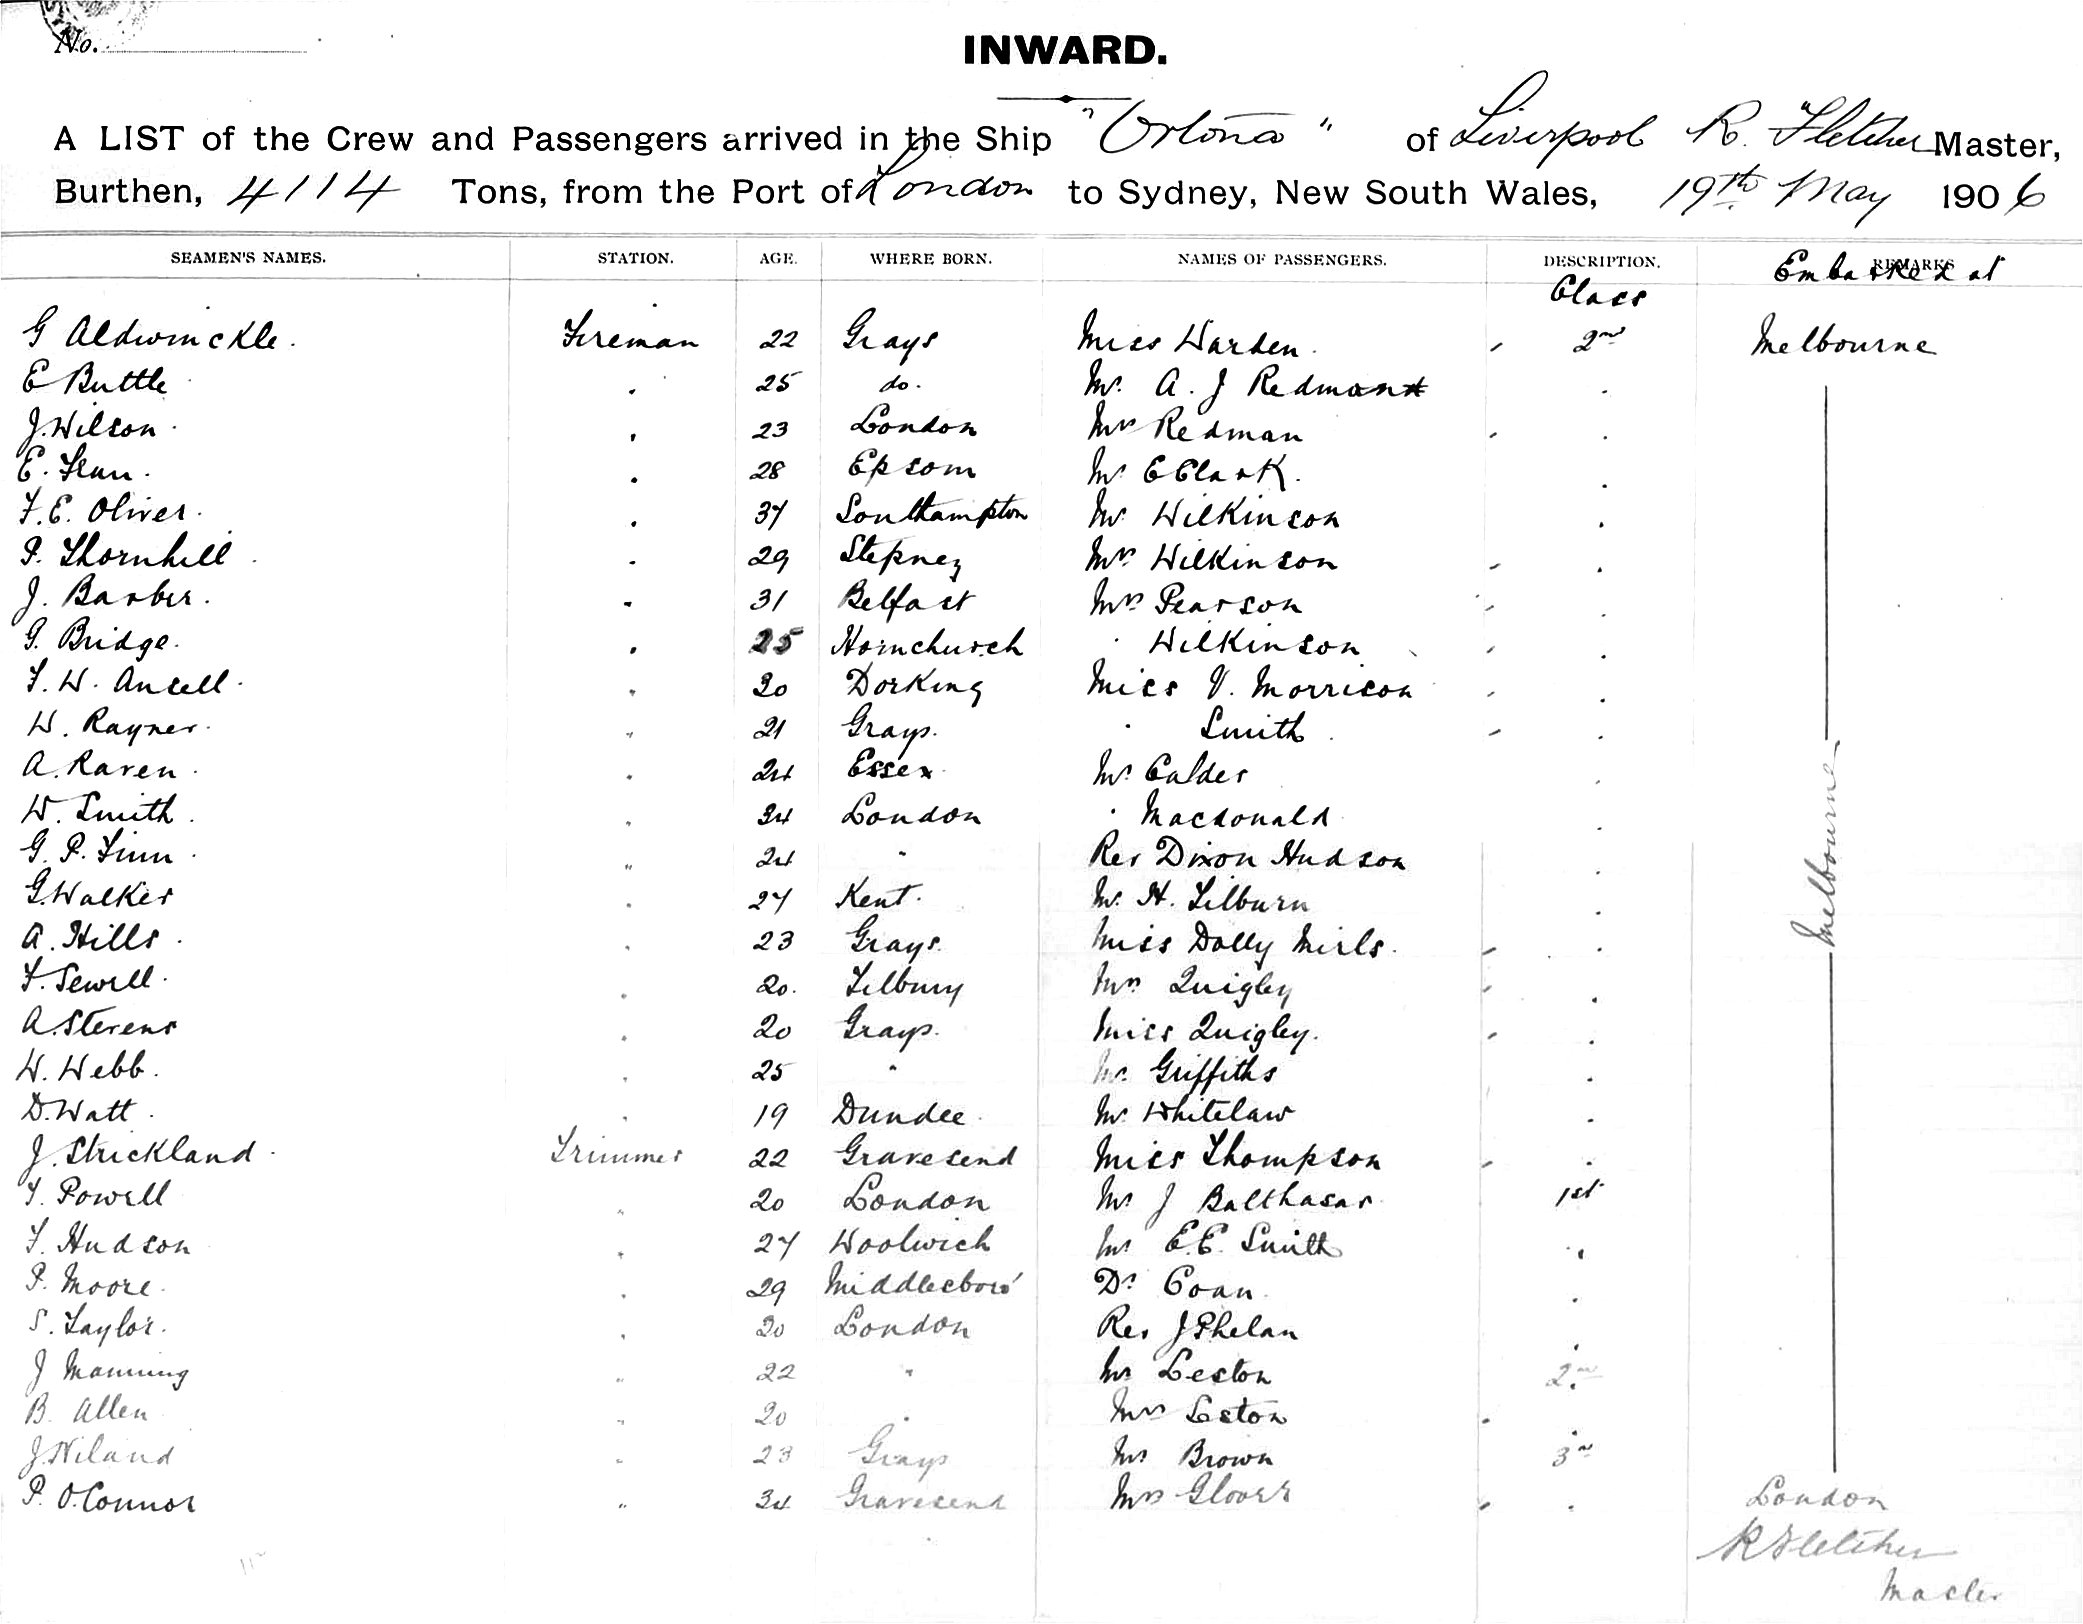 No.
INWARD.
A LIST of the Crew and Passengers arrived in the Ship "Ortona" of Liverpool R. Fletcher Master,
Burthen, 4114 Tons, from the Port of London to Sydney, New South Wales, 19th May 1906
SEAMEN'S NAMES. STATION. AGE. WHERE BORN. NAMES OF PASSENGERS. DESCRIPTION. REMARKS
Class Embarked at
G Aldwinckle. Fireman 22 Grays Miss Warden. 2nd Melbourne
E Buttle " 25 do. Mr. A. J Redman
J. Wilson " 23 London Mrs Redman "
E. " 28 Epsom Mr E Clark. "
F. E. Oliver. " 37 Southampton Mr Wilkinson "
P. Thornhill " 29 Stepney Mrs Wilkinson "
J. Barber. " 31 Belfast Mrs Pearson "
G. Bridge. " 25 Hornchurch " Wilkinson "
F. W. Ansell. " 20 Dorking Miss V. Morrison "
W. Rayner. " 21 Grays. " Smith "
A. Raven. " 24 Essex Mr Calder "
W. Smith. " 34 London " Macdonald " Melbourne
G. P. Finn " 24 " Rev Dixon Hudson "
G. Walker " 27 Kent. Mr. H. Tilburn "
A. Hills. " 23 Grays. Miss Dolly "
F. Sewell. " 20. Tilbury Mrs Quigley "
A. Stevens " 20 Grays. Miss Quigley. "
W. Webb. " 25 " Mr. Griffiths "
D. Watt. " 19 Dundee. Mr Whitelaw "
J. Strickland. Trimmer 22 Gravesend Miss Thompson "
T. Powell " 20 London Mr J Balthasar 1st
F. Hudson " 27 Woolwich Mr E.E. Smith "
P. Moore. " 29 Middlesboro' Dr. Coan. "
S. Taylor. " 20 London Rev J Phelan "
J Manning " 22 " Mr Leston 2nd
B. Allen " 20 " Mrs Leston "
J. Niland " 23 Grays Mr Brown 3rd
P. O'Connor " 34 Gravesend Mrs Glover " London
R Fletcher
Master